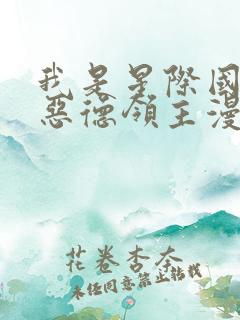 我是星際國
惡德領主漫
花卷杏奈
未经同意禁止转载